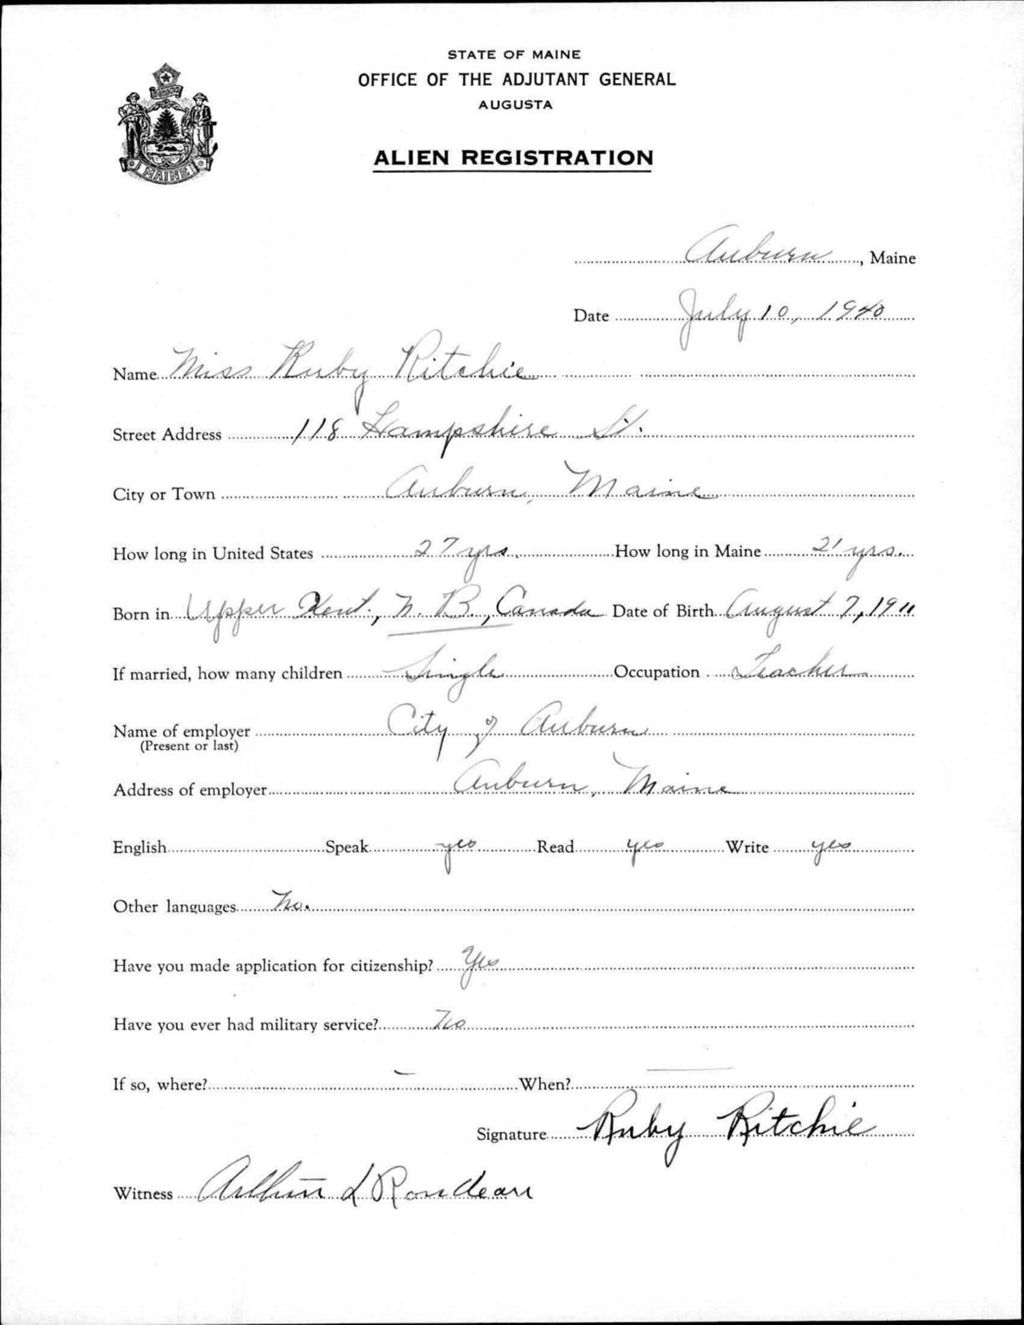 STATE OF MAINE
OFFICE OF THE ADJUTANT GENERAL
AUGUSTA
ALIEN REGISTRATION
MAINE
Auburn, Maine
Date July 10, 1940
Name Miss Ruby Ritchie
Street Address 118 Hampshire St.
City or Town Auburn, Maine
How long in United States 27 yrs. How long in Maine 21 yrs.
Born in Upper Kent, N. B., Canada Date of Birth August 7, 1911
If married, how many children Single Occupation Teacher
Name of employer City of Auburn
(Present or last)
Address of employer Auburn, Maine
English Speak yes Read yes Write yes
Other languages No.
Have you made application for citizenship? Yes
Have you ever had military service? No
If so, where? – When? —
Signature Ruby Ritchie
Witness Arthur L Rondeau